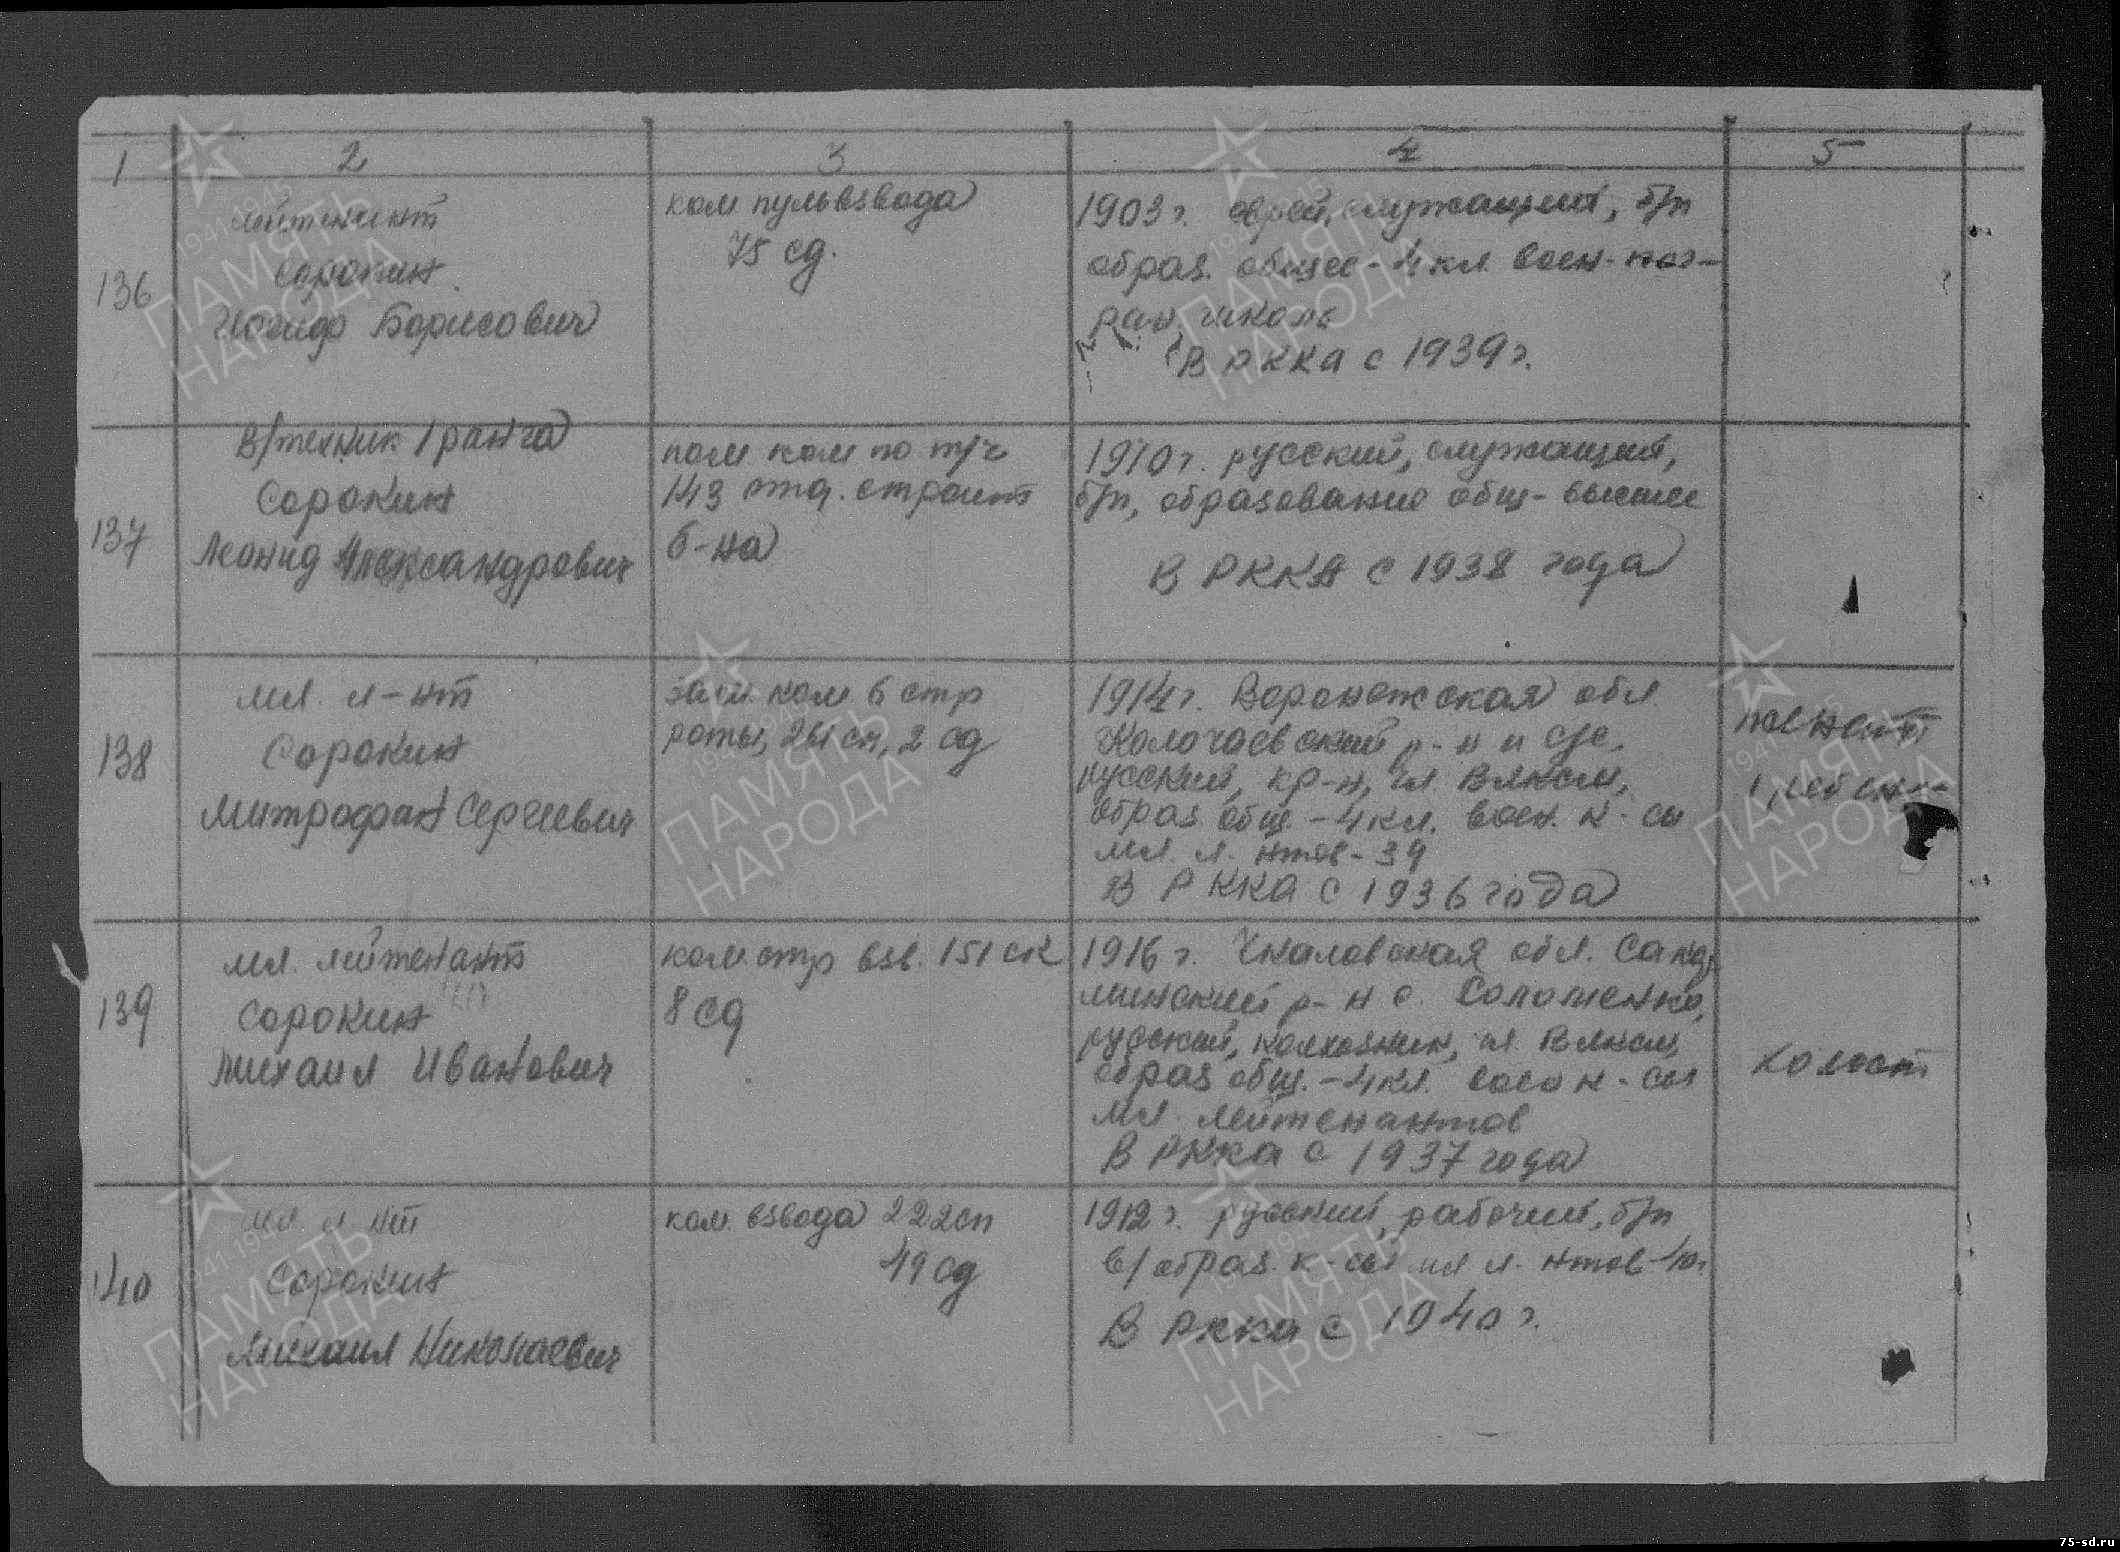 1 2 3 4 5
136
лейтенант
Сорокин
Иосиф Борисович
ком пульвзвода
75 сд.
1903 г. еврей, служащий, б/п
образ. общее - 4 кл. воен-пог-
ран. школа
В РККА с 1939 г.
137
В/техник 1 ранга
Сорокин
Леонид Александрович
пом ком по т/ч
143 отд. строит
б-на
1910 г. русский, служащий,
б/п, образование общ-высшее
В РККА с 1938 года
138
мл. л-нт
Сорокин
Митрофан Сергеевич
зам. ком 6 стр
роты, 261 сп, 2 сд
1914 г. Воронежская обл.
Калачаевский р-н и с/с,
русский, кр-н, чл ВЛКСМ,
образ общ. - 4 кл. воен. к-сы
мл. л. нтов - 39
В РККА с 1936 года
женат
1 ребенк
139
мл. лейтенант
Сорокин
Михаил Иванович
ком стр взв. 151 сп
8 сд
1916 г. Чкаловская обл. Сакр
минский р-н с.
русский, колхозник, чл ВЛКСМ,
образ общ. - 4 кл. воен к-сы
мл. лейтенантов
В РККА с 1937 года
холост
140
мл. л нт
Сорокин
Михаил Николаевич
ком. взвода 222 сп
49 сд
1912 г. русский, рабочий, б/п
в/образ. к-сы мл л. нтов-40г.
В РККА с 1940 г.
1941 1945
ПАМЯТЬ
НАРОДА
75-sd.ru